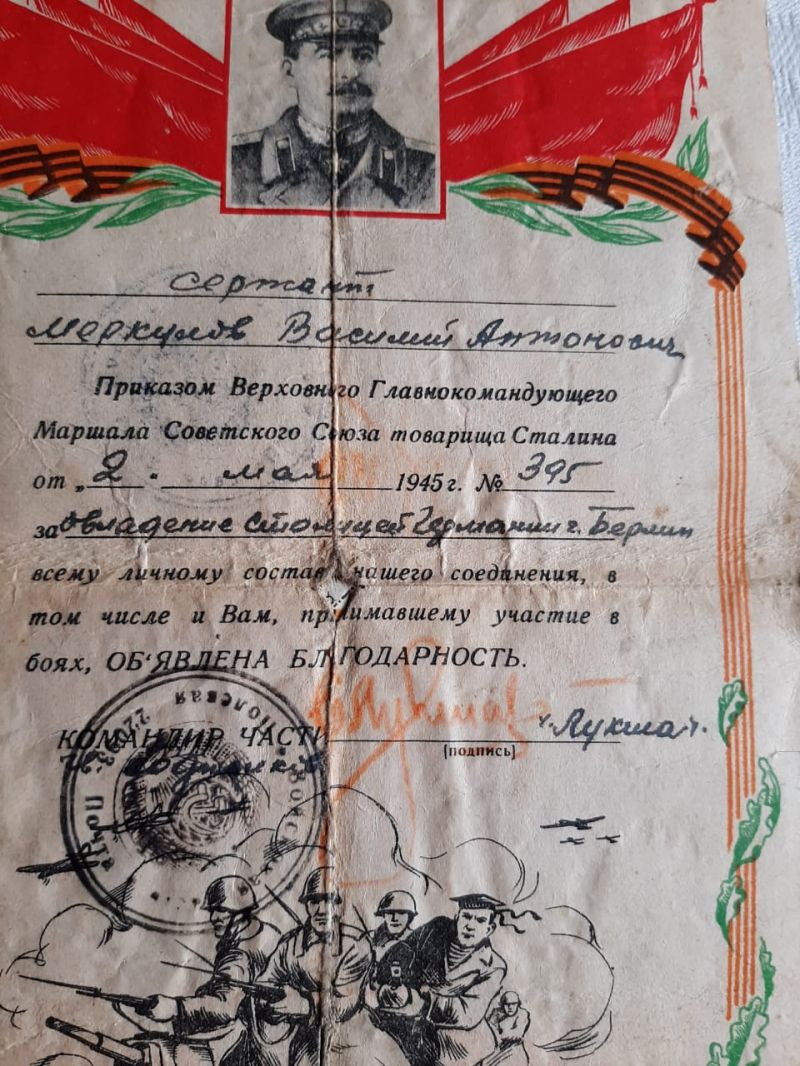 сержант
Меркулов Василий Антонович
Приказом Верховного Главнокомандующего
Маршала Советского Союза товарища Сталина
от „2. мая 1945 г. № 395
за Овладение Столицей Германии г. Берлин
всему личному составу нашего соединения, в
том числе и Вам, принимавшему участие в
боях, ОБ‘ЯВЛЕНА БЛАГОДАРНОСТЬ.
КОМАНДИР ЧАСТИ
(подпись)
Полевая